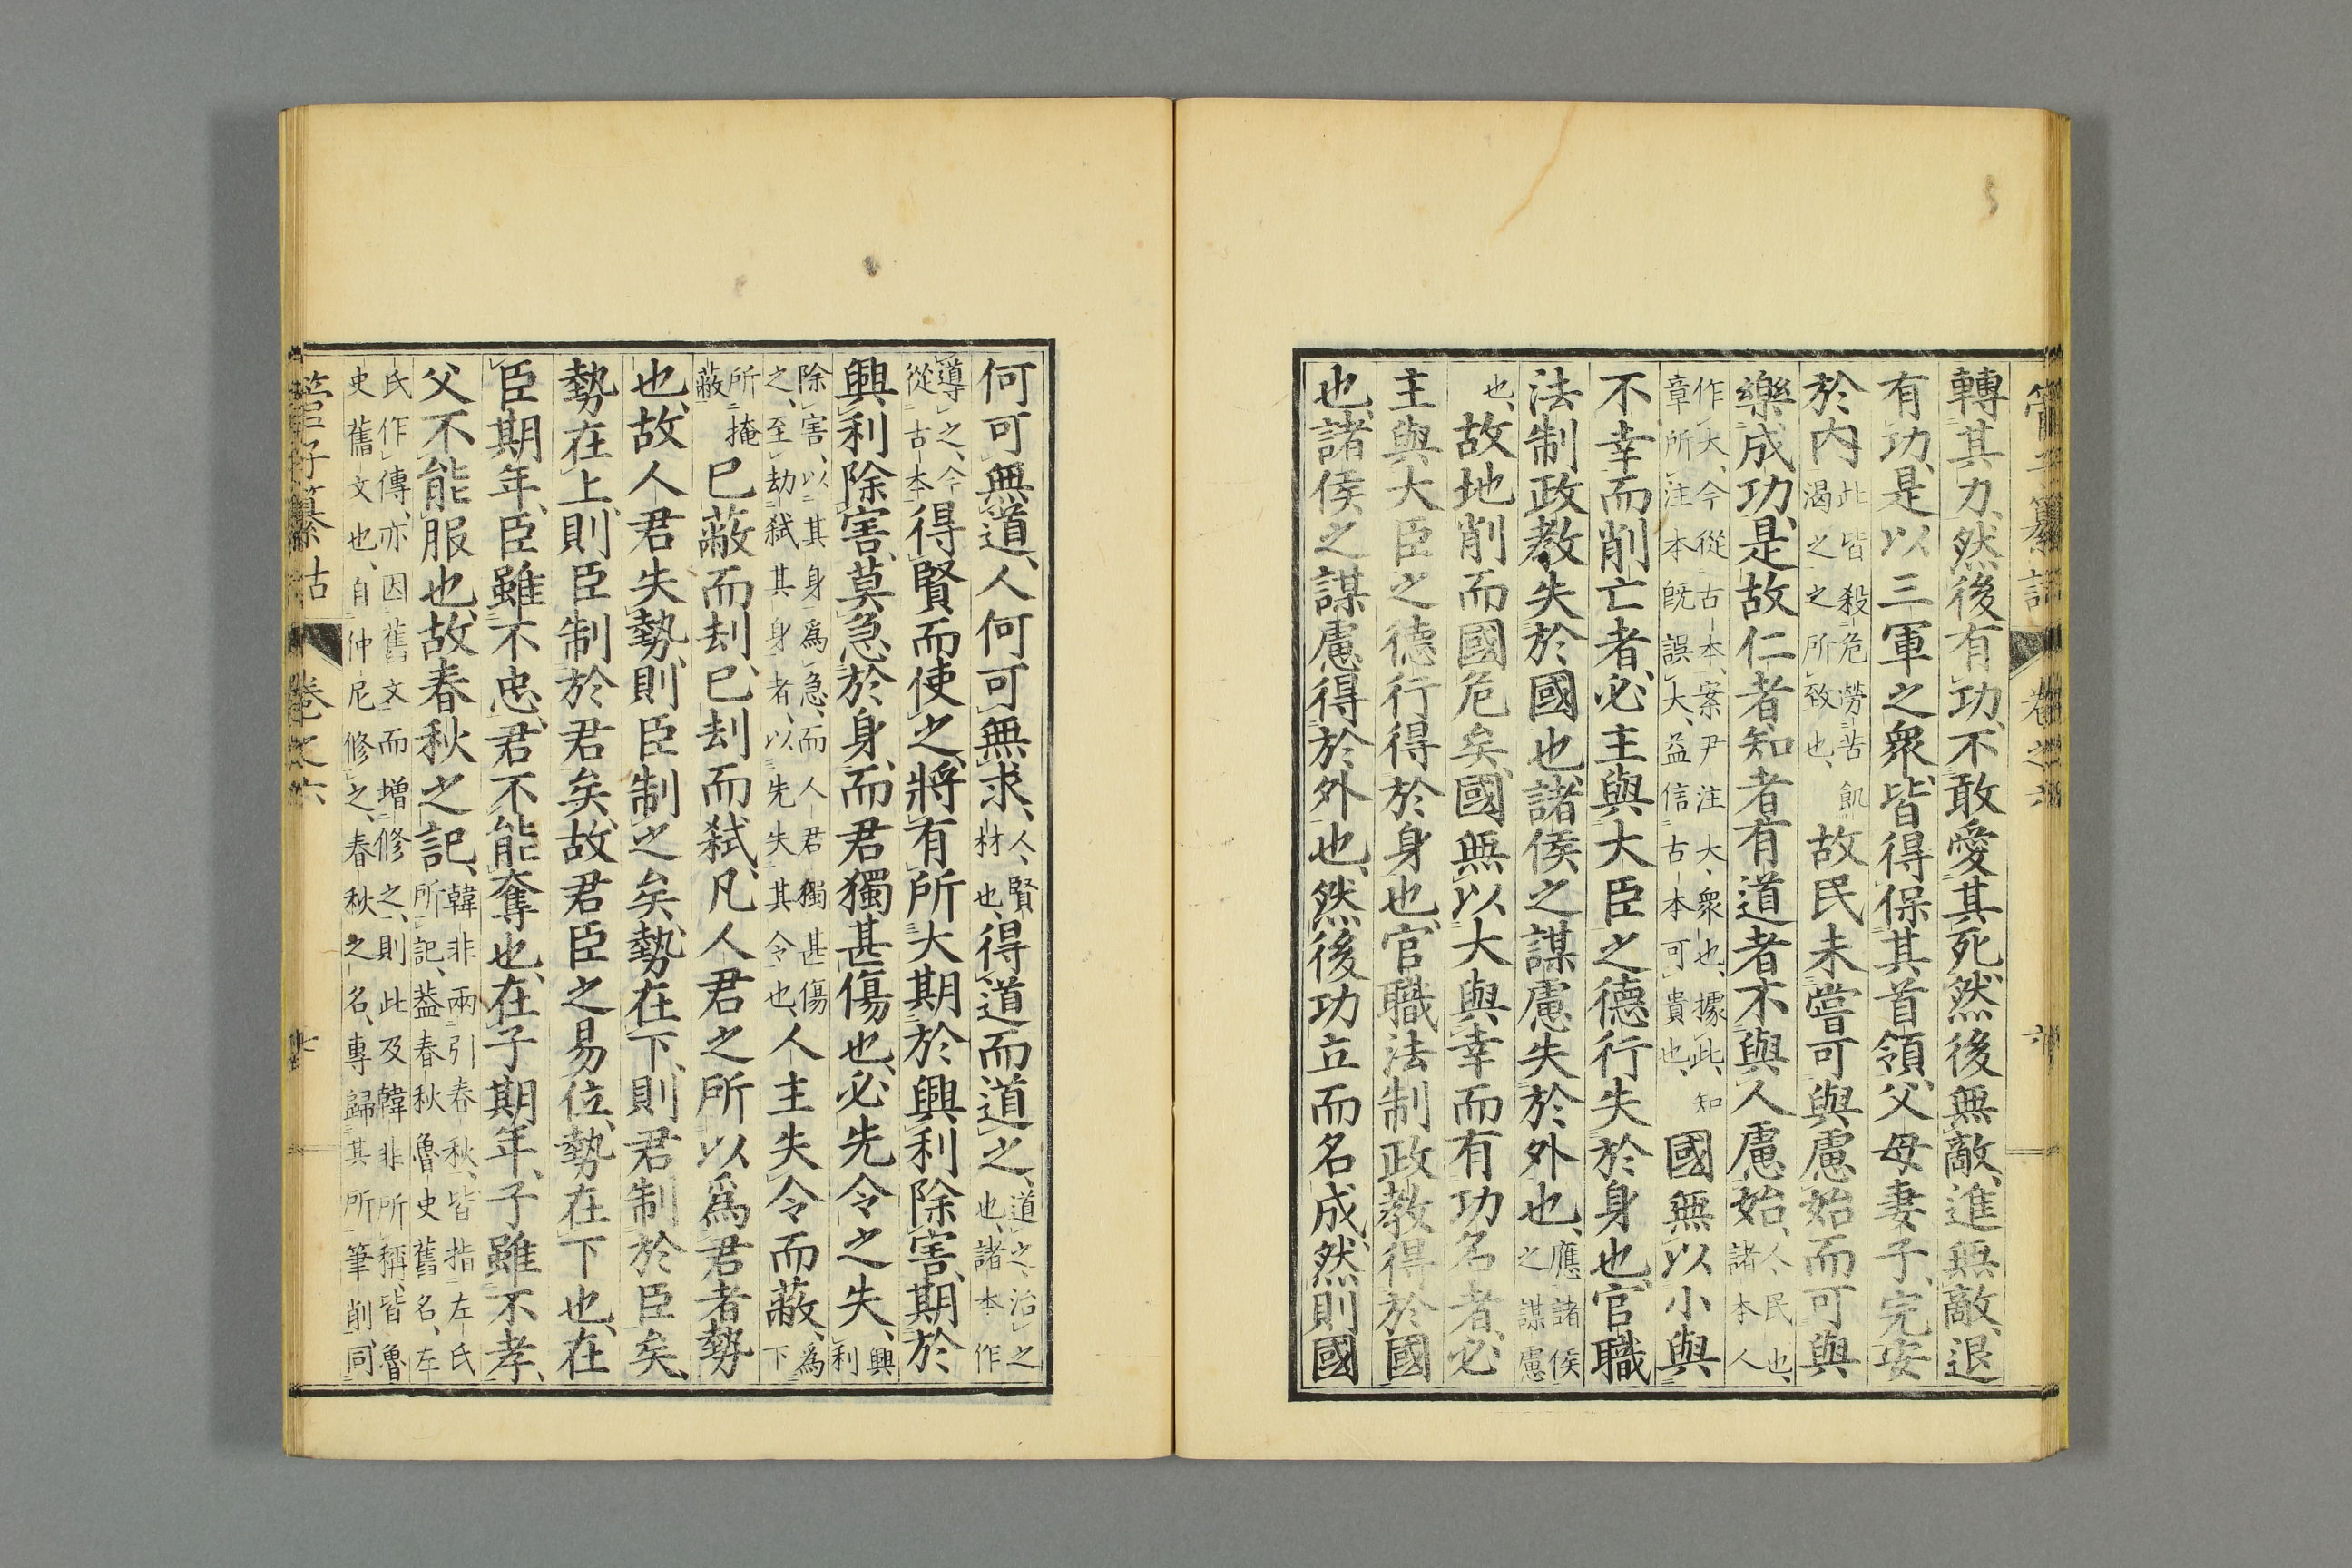 管子纂詁 卷之六 六
轉其力、然後有功、不敢愛其死、然後無敵、進無敵、退
有功、是以三軍之衆、皆得保其首領、父母妻子、完安
於内、此皆殺危勞苦飢渴之之所致也、故民未嘗可與慮始、而可與
樂成功、是故仁者知者有道者、不與人慮始、人、民也、諸本人
作大、今從古本、案尹注大、衆也、據此、知章所注本既誤大、益信古本可貴也、國無以小與
不幸而削亡者、必主與大臣之德行失於身也、官職
法制政教、失於國也、諸侯之謀慮失於外也、應諸侯之謀慮
也、故地削而國危矣、國無以大與幸而有功名者、必
主與大臣之德行得於身也、官職法制政教得於國
也、諸侯之謀慮得於外也、然後功立而名成、然則國
何可無道、人何可無求、人、賢材也、得道而道之、道之、治之也、諸本作
導之、今從古本、得賢而使之、將有所大期於興利除害、期於
興利除害、莫急於身、而君獨甚傷也、必先令之失、興利
除害、以其身爲急、而人君獨甚傷之、至劫弑其身者、以先失其令也、人主失令而蔽、爲下
所掩蔽、已蔽而刦、已刦而弑、凡人君之所以爲君者勢
也、故人君失勢、則臣制之矣、勢在下、則君制於臣矣、
勢在上、則臣制於君矣、故君臣之易位、勢在下也、在
臣期年、臣雖不忠、君不能奪也、在子期年、子雖不孝、
父不能服也、故春秋之記、韓非兩引春秋、皆指左氏所記、葢春秋魯史舊名、左
氏作傳、亦因舊文而增修之、則此及韓非所稱、皆魯史舊文也、自仲尼修之、春秋之名、專歸其所筆削、同
管子纂詁 卷之六 七